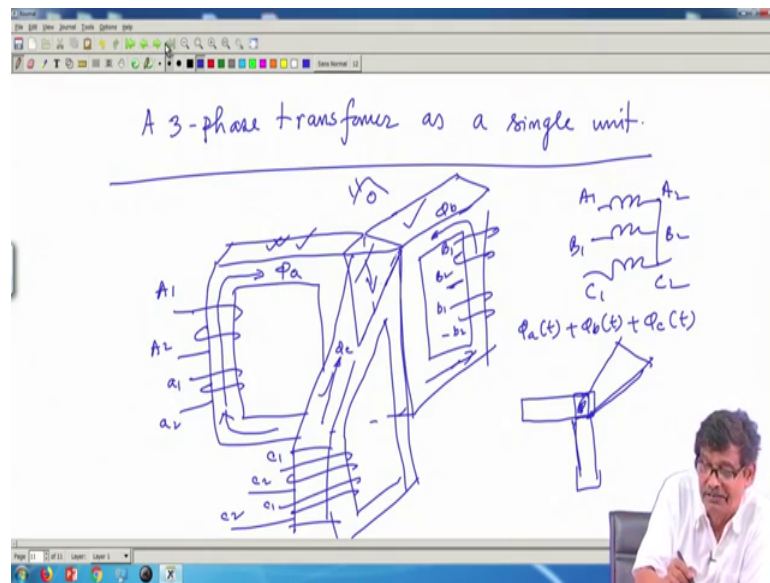 Journal
File Edit View Journal Tools Options Help
Sans Normal 12
A 3-phase transfomer as a single unit.
Yo
φa
φb
φc
A1
A2
a1
a2
B1
B2
b1
b2
C1
C2
c1
c2
A1 A2
B1 B2
C1 C2
φa(t) + φb(t) + φc(t)
Page 11 of 11 Layer: Layer 1